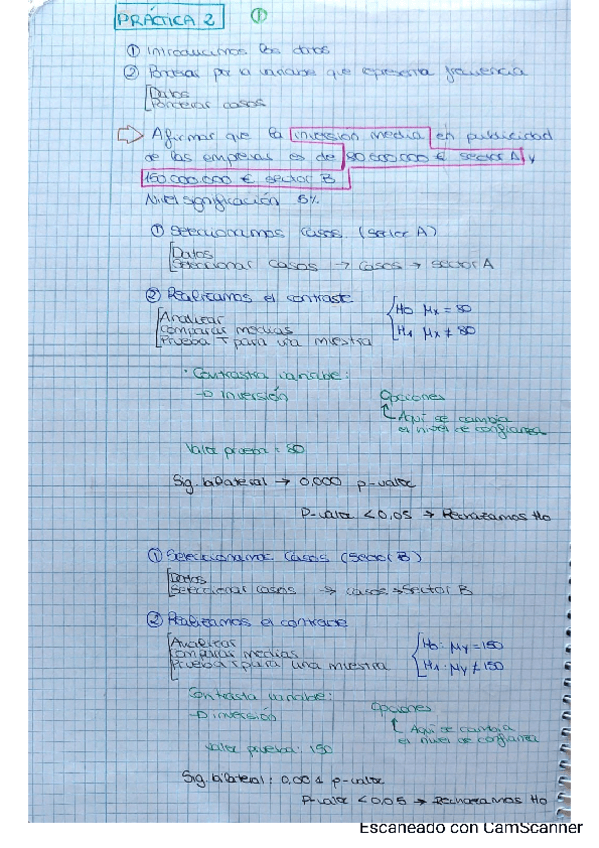 PRÁCTICA 2 ①
① Introducimos los datos
② Ponderar por la variable que representa frecuencia
Datos
Ponderar casos
Afirmar que la inversión media en publicidad
de las empresas es de 80.000.000 € sector A y
150.000.000 € sector B
Nivel significación 5%
① Seleccionamos casos (sector A)
Datos
Seleccionar casos → casos → sector A
② Realizamos el contraste
Analizar
Comparar medias
Prueba T para una muestra
H₀ μx = 80
H₁ μx ≠ 80
· Contrasta variable:
→ inversión
Opciones
Aquí se cambia
el nivel de confianza
Valor prueba = 80
Sig. bilateral → 0,000 p-valor
P-valor < 0,05 → Rechazamos H₀
① Seleccionamos casos (Sector B)
Datos
Seleccionar casos → casos → Sector B
② Realizamos el contraste
Analizar
Comparar medias
Prueba T para una muestra
H₀: μy = 150
H₁: μy ≠ 150
Contrasta variable:
→ inversión
Opciones
Aquí se cambia
el nivel de confianza
Valor prueba: 150
Sig. bilateral: 0,001 p-valor
P-valor < 0,05 → Rechazamos H₀
Escaneado con CamScanner